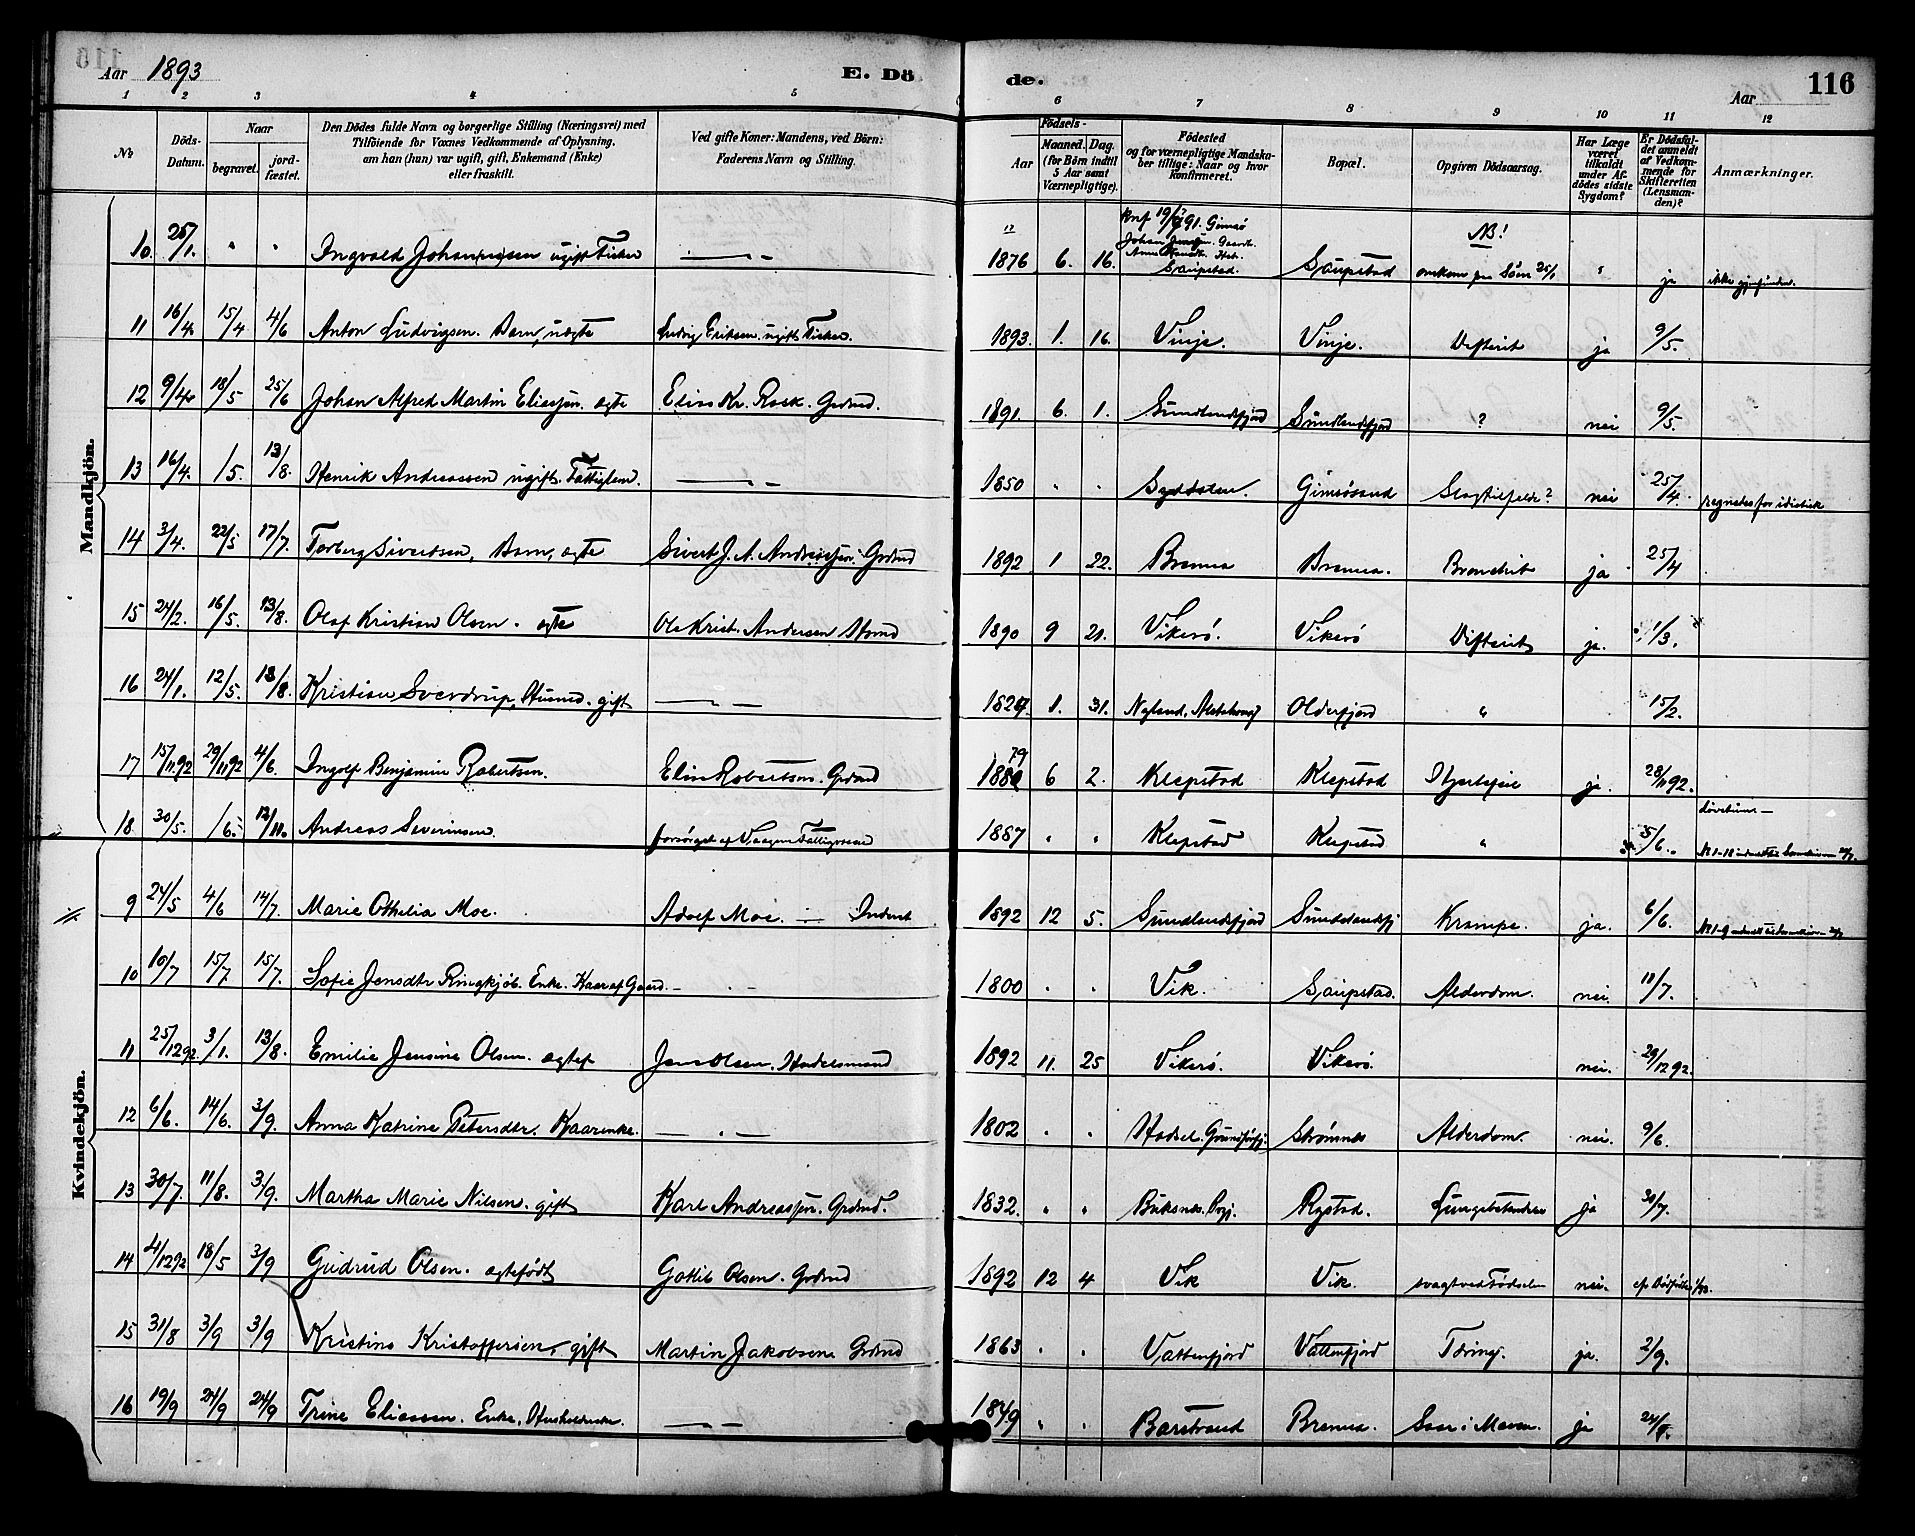 Aar 1893
E. Dö
de.
116
Aar
1 2 3 4 5 6 7 8 9 10 11 12
No
Döds-Datum.
Naar
begravet.
jord-fæstet.
Den Dödes fulde Navn og borgerlige Stilling (Næringsvei) med
Tilföiende for Voxnes Vedkommende af Oplysning,
om han (hun) var ugift, gift, Enkemand (Enke)
eller fraskilt.
Ved gifte Koner: Mandens, ved Börn:
Faderens Navn og Stilling.
Födsels-
Aar
Maaned. Dag.
(for Börn indtil
5 Aar samt
Værnepligtige).
Födested
og for værnepligtige Mandska-
ber tillige: Naar og hvor
konfirmeret.
Bopæl.
Opgiven Dödsaarsag.
Har Læge
været
tilkaldt
under Af-
dödes sidste
Sygdom?
Er Dödsfal-
det anmeldt
af Vedkom-
mende for
Skifteretten
(Lensman-
den)?
Anmærkninger.
Mandkjön.
10 25/1. " " Ingvald Johannessen ugift Fisker — 1876 6. 16. Gimsö Saupstad. Saupstad NB! omkom paa Söen 25/1 " ja ikke gjenfunden.
11 16/4. 15/4 4/6 Anton Ludvigsen. Barn, uægte Ludvig Eriksen. ugift Fisker. 1893. 1. 16. Vinje. Vinje. Difterit ja 9/5.
12 9/4. 18/5 25/6 Johan Alfred Martin Eliassen. ægte Elias Kr. Rask. Grdmd. 1891. 6. 1. Sundlandsfjord Sundlandsfjord ? nei 9/5.
13 16/4. 1/5. 13/8. Henrik Andreassen ugift. Fattiglem. — 1850 " " Sydalen. Gimsösand Slagtilfelde? nei 25/4. regnedes for idiotisk
14 3/4. 22/5 17/7. Torberg Sivertsen, Barn, ægte Sivert J. A. Andreassen. Grdmd 1892 1 22. Brenna Brenna. Bronchit ja 25/4
15 24/2. 16/5. 13/8. Olaf Kristian Olsen. ægte Ole Krist. Andersen Husmd 1890 9 21. Vikerö. Vikerö Difterit ja. 1/3.
16 24/1. 12/5. 13/8. Kristian Sverdrup, Husmd. gift — 1827. 1. 31. Nyland, Olderfjord " 15/2.
17 15/11.92 29/11 92 4/6. Ingolf Benjamin Robertsen. Elias Robertsen. Grdmd 1879 6 2. Kleppstad Kleppstad Hjertefeil ja. 28/11 92.
18 30/5. 1/6. 12/11. Andreas Severinsen. forsörget af Vaagens Fattigvæsen 1887 " " Kleppstad Kleppstad " 5/6. dövstum —
Kvindekjön.
9 24/5 4/6 14/7. Marie Othelia Moe. Adolf Moe. — Inderst 1892 12 5. Sundlandsfjord Sundlandsfj Krampe. ja. 6/6.
10 10/7 15/7. 15/7. Sofie Jensdtr Ringkjöb. Enke. Kaar af Gaard. — 1800 " " Vik. Saupstad. Alderdom. nei. 11/7.
11 25/12 92. 3/1. 13/8. Emilie Jensine Olsen. ægtef Jens Olsen. Handelsmand 1892 11. 25 Vikerö. Vikerö. nei. 29/12 92.
12 6/6. 14/6. 3/9. Anna Katrine Petersdtr. Kaarenke. — 1802 " " Hadsel. Grundförfj. Strömnes Alderdom. nei. 9/6.
13 30/7. 11/8. 3/9. Martha Marie Nilsen. gift Karl Andreassen. Grdmd. 1832. " " Buksnes Prgj. Rystad. Lungebetendelse ja 30/7.
14 4/12 92 18/5 3/9 Gudrud Olsen. ægtefödt Gotlib Olsen. Grdmd 1892 12 4 Vik Vik. svagt ved Födselen nei.
15 31/8 3/9 3/9 Kristine Kristoffersen, gift Martin Jakobsen Grdmd 1863 " " Vattenfjord Vattenfjord Tæring. ja. 2/9.
16 19/9 24/9 24/9 Trine Eliassen. Enke, Husholderske. — 1849 " " Barstrand Brenna. Saar i Maven. ja